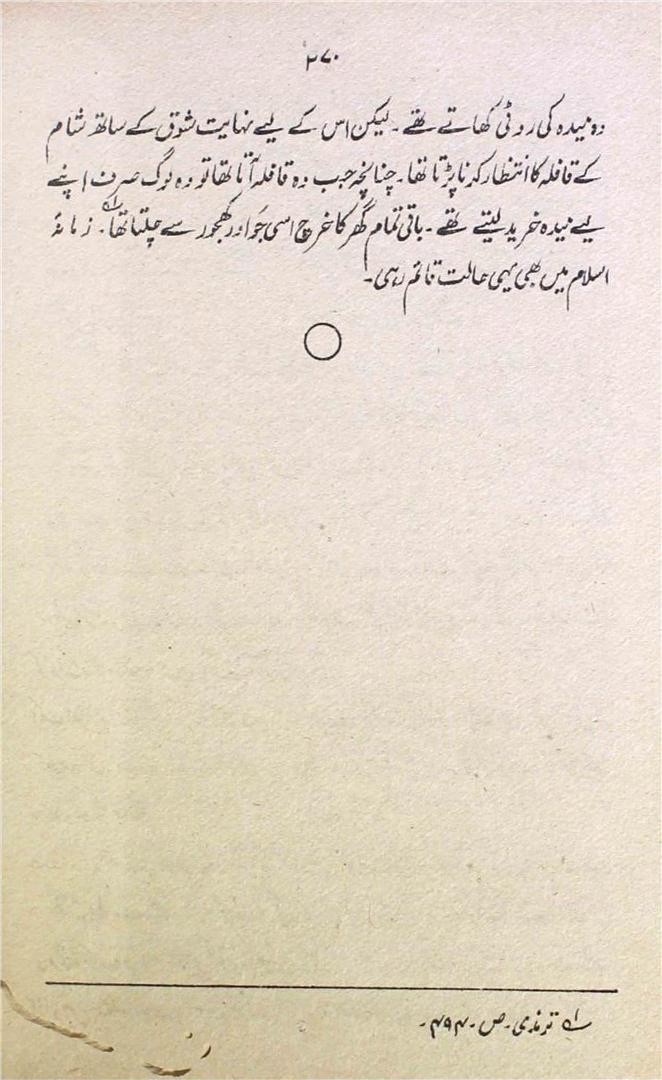 ۲۷۰
وہ میدہ کی روٹی کھاتے تھے۔ لیکن اس کے لیے نہایت شوق کے ساتھ شام
کے قافلہ کا انتظار کرنا پڑتا تھا۔ چنانچہ جب وہ قافلہ آتا تھا تو وہ لوگ صرف اپنے
لیے میدہ خرید لیتے تھے۔ باقی تمام گھر کا خرچ اسی جَو اور کھجور سے چلتا تھا۔ لہ زمانۂ
اسلام میں بھی یہی حالت قائم رہی۔
لہ ترمذی۔ ص۔ ۴۹۴۔